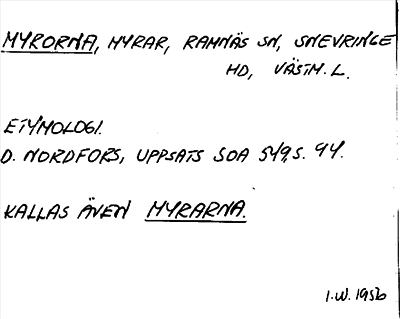 MYRORNA, MYRAR, RAMNÄS SN, SNEVRINGE
HD, VÄSTM. L.
ETYMOLOGI.
D. NORDFORS, UPPSATS SOA 549, S. 94.
KALLAS ÄVEN MYRARNA.
I.W. 1956